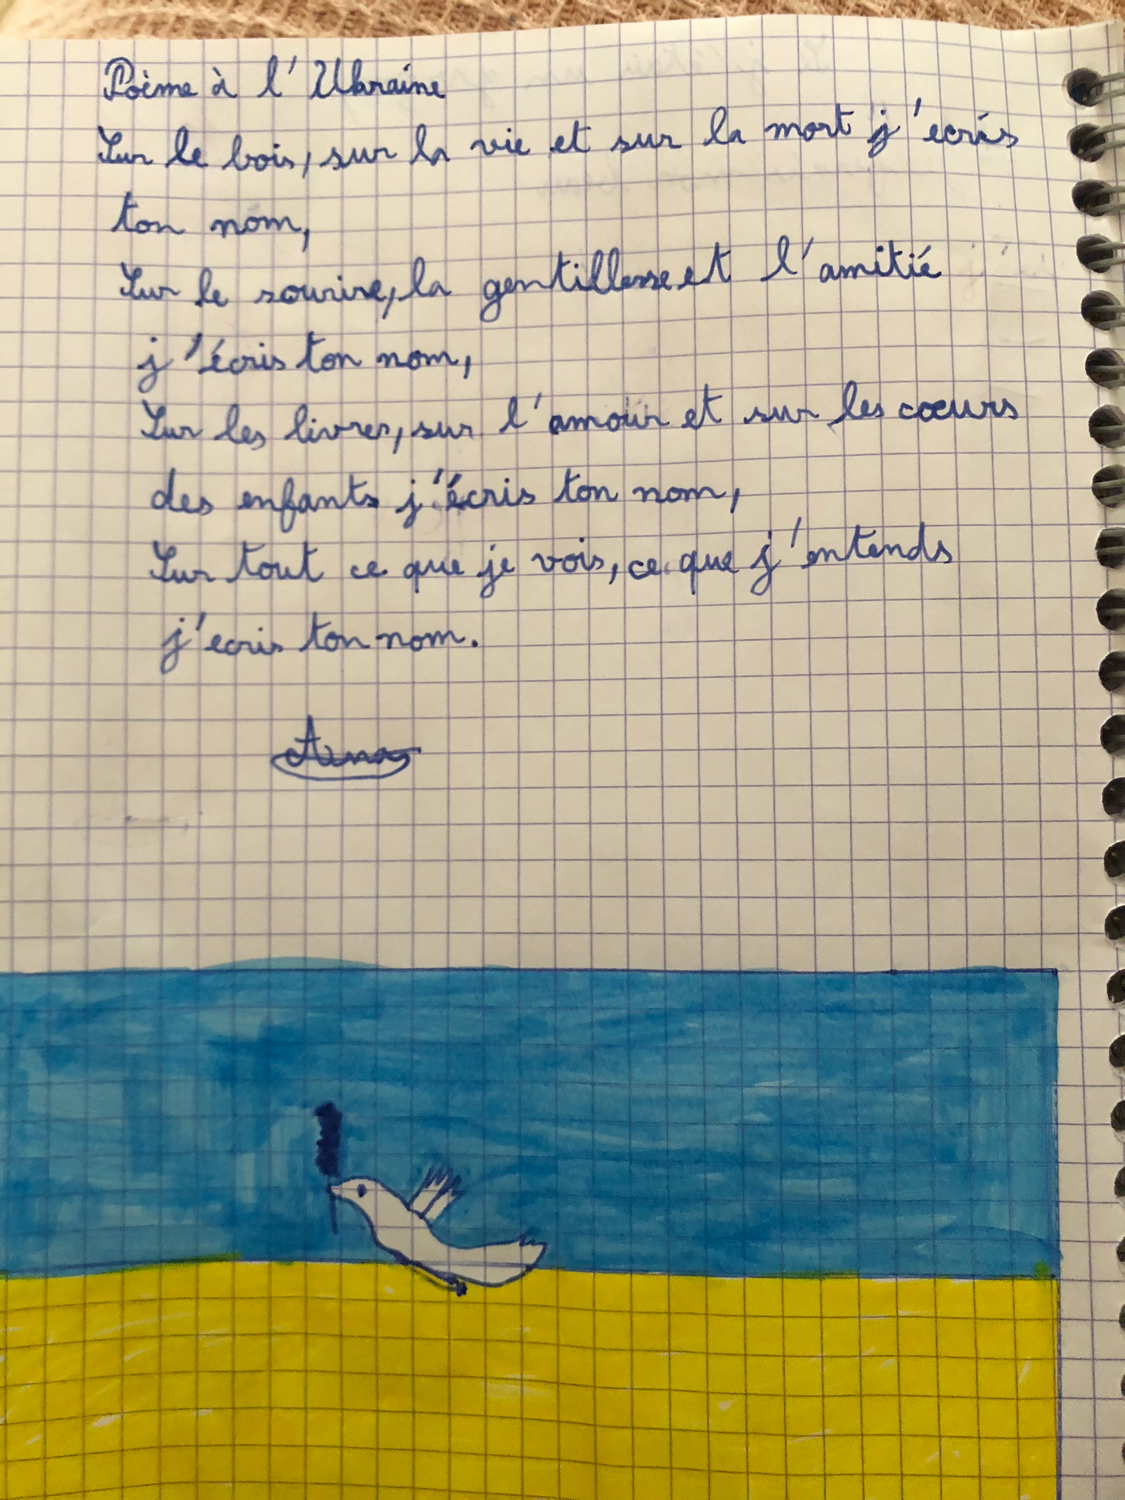 Poème à l'Ukraine
Sur le bois, sur la vie et sur la mort j'ecris
ton nom,
Sur le sourire, la gentillesse et l'amitié
j'écris ton nom,
Sur les livres, sur l'amour et sur les cœurs
des enfants j'écris ton nom,
Sur tout ce que je vois, ce que j'entends
j'ecris ton nom.